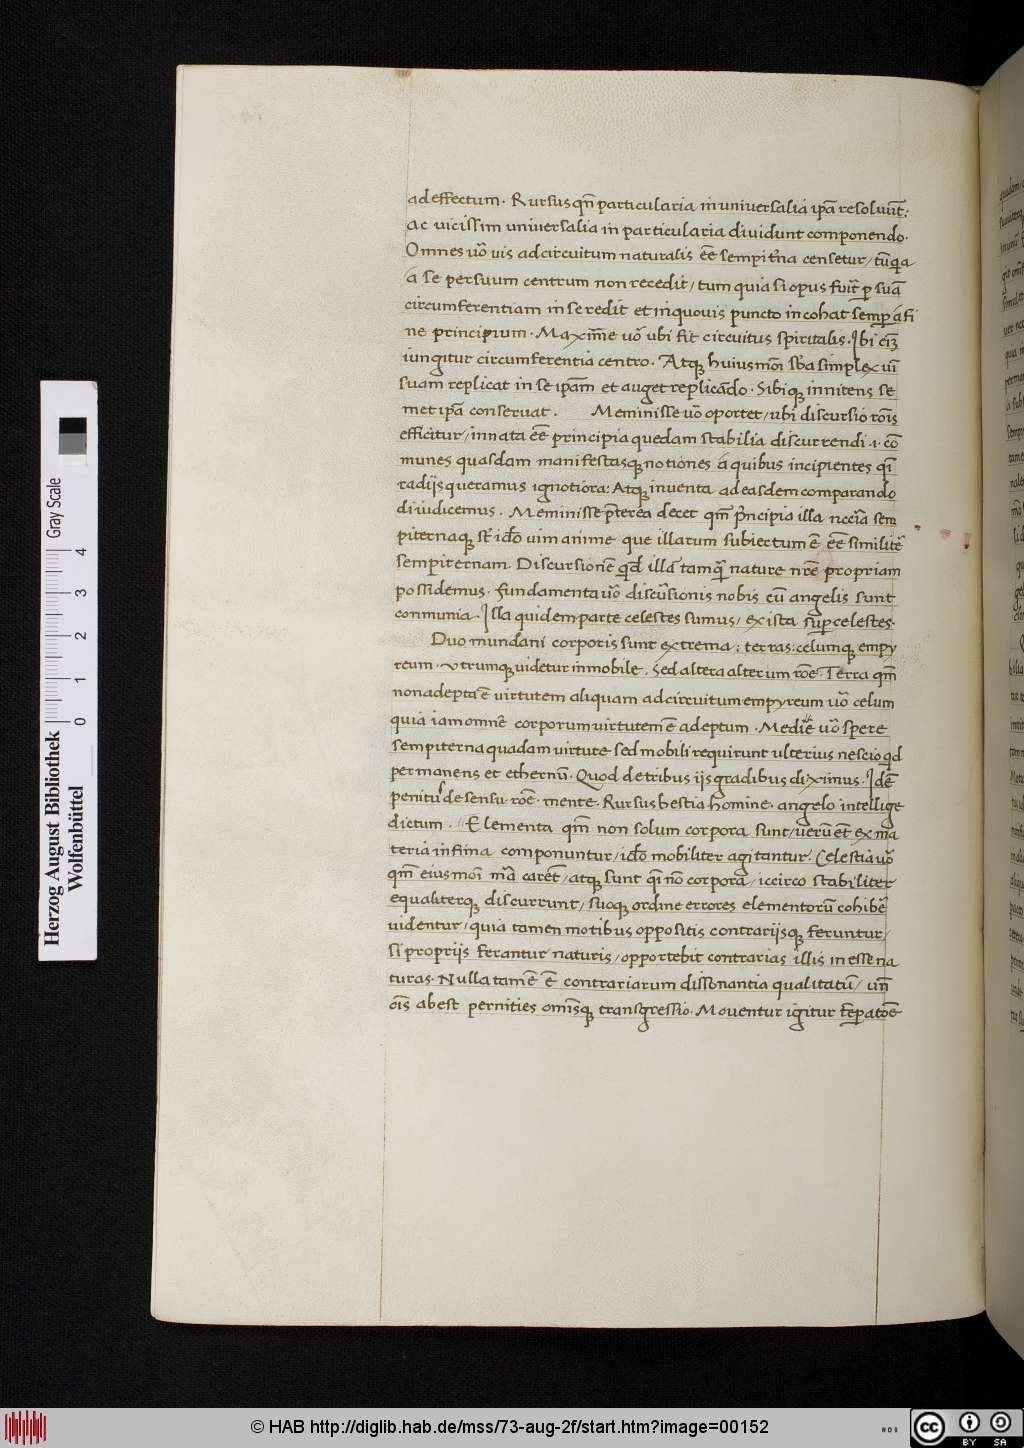 ad effectum. Rursus qñ particularia in universalia ipã resoluũt:
ac vicissim universalia in particularia dividunt componendo.
Omnes uõ vis ad circuitum naturalis eẽ sempit̃na censetur/ tũ quia
a se per suum centrum non recedit/ tum quia si opus fuit̃ p suã
circumferentiam in se redit et in quovis puncto incohat semp a fi
ne principium. Maxime uõ ubi fit circuitus spiritalis. Ibi eñ
iungitur circumferentia centro. Atque huiusmõi sbã simplex vi
suam replicat in se ipam̃ et auget replicãdo. Sibique innitens se
met ipã conservat. Meminisse uõ oportet/ ubi discursio rõis
efficitur/ innata eẽ principia quedam stabilia discurrendi .i. cõ
munes quasdam manifestasque notiones a quibus incipientes q̃
radijs queramus ignotiora: Atque inventa ad easdem comparando
diiudicemus. Meminisse p̃terea decet qm̃ p̃ncipia illa nccĩa sem
piternaque st̃ idõ vim anime que illarum subiectum ẽ eẽ similit̃
sempiternam. Discursionẽ qd illã tamq̃ nature nr̃e propriam
possidemus. Fundamenta uõ discursionis nobis cũ angelis sunt
conmunia. Illa quidem parte celestes sumus/ ex ista sup celestes.
Duo mundani corporis sunt extrema; terras: celumque empy
reum. Utrumque videtur inmobile. Sed altera alterum rõe. Terra qm̃
non adepta ẽ virtutem aliquam ad circuitum empyreum uõ celum
quia iam omnẽ corporum virtutem ẽ adeptum. Medie uõ spere
sempiterna quadam virtute sed mobili requirunt ulterius nescio qd
permanens et ethernũ. Quod de tribus iis gradibus diximus. Idẽ
penitus de sensu. rõe. mente. Rursus bestia homine. angelo intellige
dictum. Elementa qm̃ non solum corpora sunt/ verũ et̃ ex ma
teria infima componuntur/ idõ mobiliter agitantur. Celestia uõ
qm̃ eiusmõi mã carẽt/ atque sunt q̃ nõ corpora/ iccirco stabiliter
equaliterque discurrunt/ suoque ordine errores elementorũ cohibẽ
videntur/ quia tamen motibus oppositis contrariisque feruntur/
si propriis ferantur naturis/ opportebit contrarias illis inesse na
turas. Nulla tamẽ ẽ contrariarum dissonantia qualitatũ/ uñ
õis abest pernities omĩsque transgressio. Moventur igitur temp atõe
Herzog August Bibliothek
Wolfenbüttel
Gray Scale
0 1 2 3 4
© HAB http://diglib.hab.de/mss/73-aug-2f/start.htm?image=00152
cc BY SA